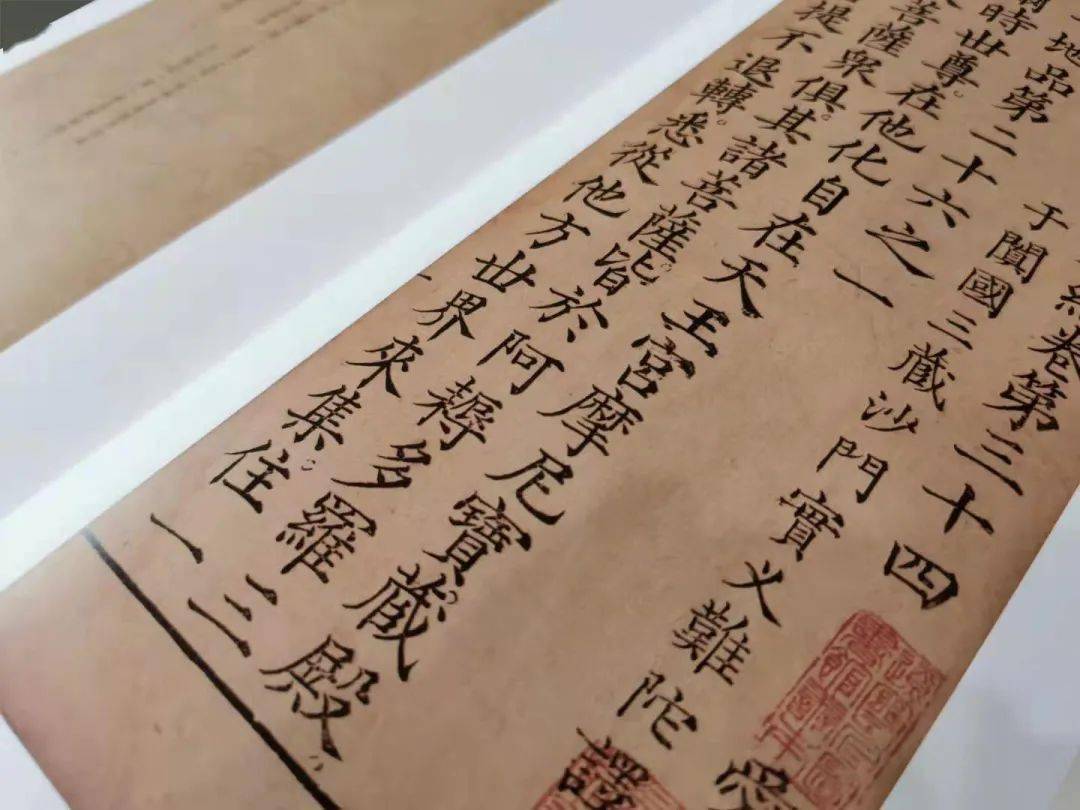 卷第三十四 愛
于闐國三藏沙門實叉難陀譯
地品第二十六之一
時世尊。在他化自在天王宮摩尼寶藏殿。
菩薩衆俱。其諸菩薩。皆於阿耨多羅三
提不退轉。悉從他方世界來集。住一